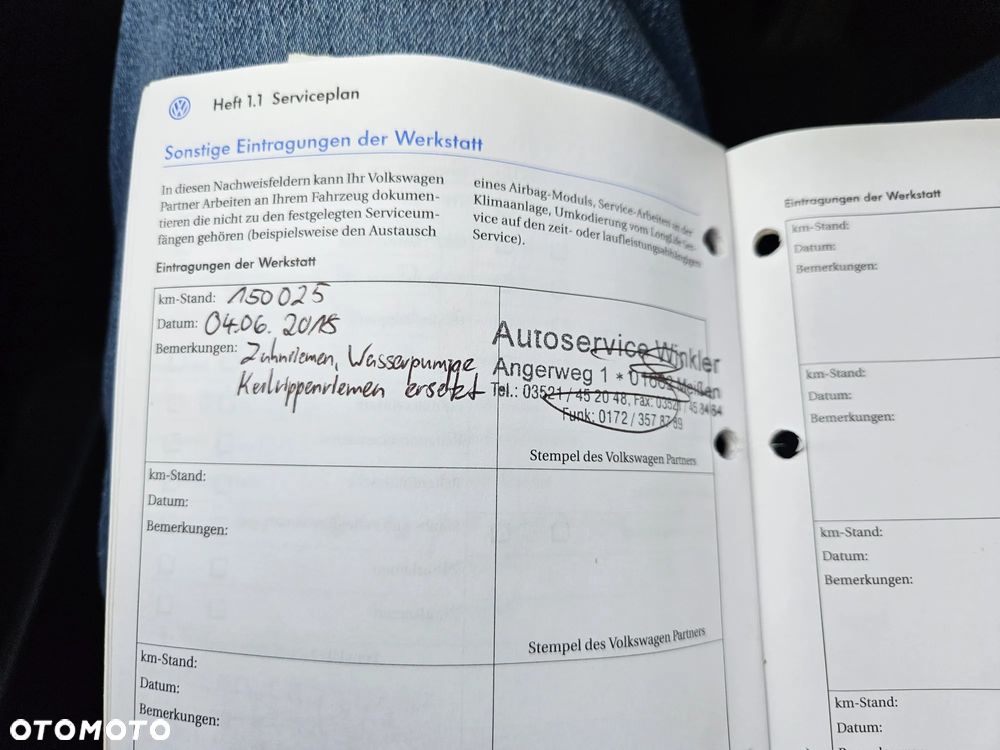 Heft 1.1 Serviceplan
Sonstige Eintragungen der Werkstatt
In diesen Nachweisfeldern kann Ihr Volkswagen
Partner Arbeiten an Ihrem Fahrzeug dokumen-
tieren die nicht zu den festgelegten Serviceum-
fängen gehören (beispielsweise den Austausch
eines Airbag-Moduls, Service-Arbeiten an der
Klimaanlage, Umkodierung vom LongLife Ser-
vice auf den zeit- oder laufleistungsabhängigen
Service).
Eintragungen der Werkstatt
km-Stand: 150025
Datum: 04.06. 2018
Bemerkungen: Zahnriemen, Wasserpumpe
Keilrippenriemen ersetzt
Autoservice Winkler
Angerweg 1 * 01662 Meißen
Tel.: 03521 / 45 20 48, Fax: 03521 / 45 84 84
Funk: 0172 / 357 87 89
Stempel des Volkswagen Partners
km-Stand:
Datum:
Bemerkungen:
Stempel des Volkswagen Partners
km-Stand:
Datum:
Bemerkungen:
Eintragungen der Werkstatt
km-Stand:
Datum:
Bemerkungen:
km-Stand:
Datum:
Bemerkungen:
km-Stand:
Datum:
Bemerkungen:
km-Stand:
Datum:
OTOMOTO